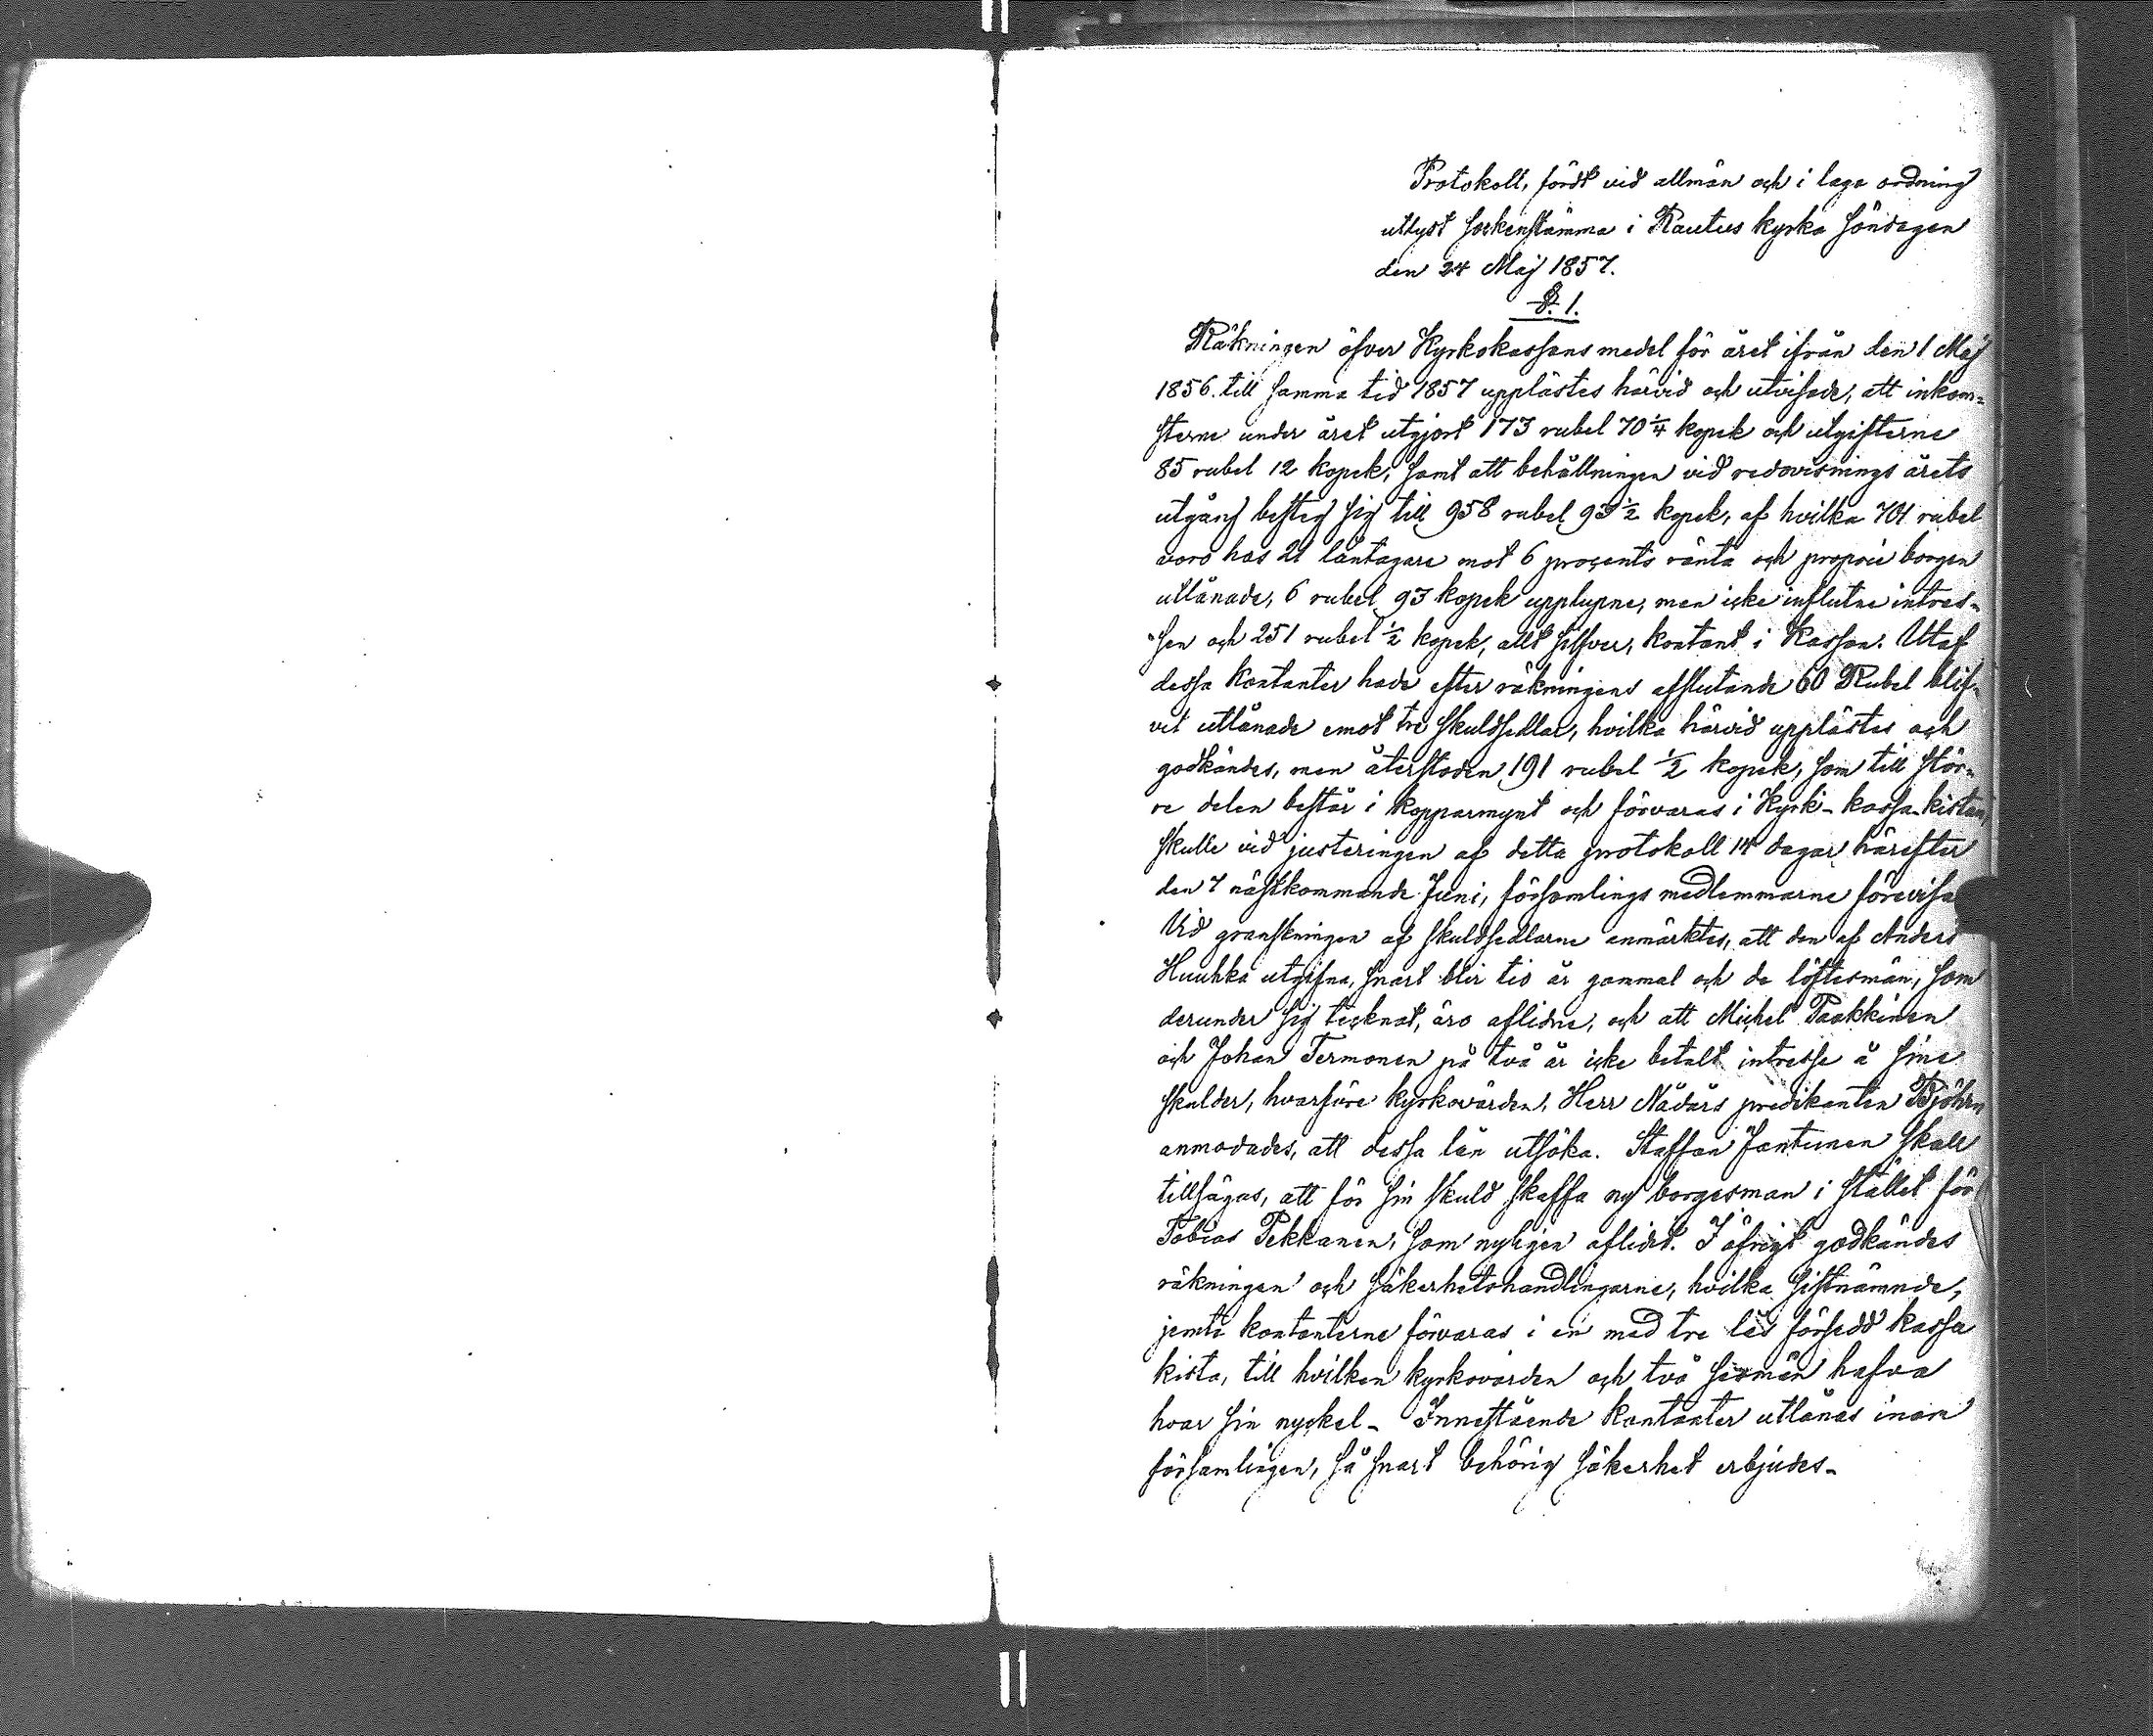 Protokoll, fördt vid allmän och i laga ordning
utlyst sockenstämma i Rautus kyrka söndagen
den 24 Maj 1857.
§. 1.
Räkningen öfver Kyrkokassans medel för året ifrån den 1 Maj
1856. till samma tid 1857 upplästes härvid och utvisade, att inkom-
sterne under året utgjort 173 rubel 70 1/4 kopek och utgifterne
85 rubel 12 kopek, samt att behållningen vid redovisnings årets
utgång besteg sig till 958 rubel 93 1/2 kopek, af hvilka 701 rubel
voro hos 21 låntagare mot 6 procents ränta och proprie borgen
utlånade, 6 rubel 93 kopek upplupne, men icke influtne intres-
sen och 251 rubel 1/2 kopek, allt silfver, kontant i Kassan. Utaf
dessa kontanter hade efter räkningens afslutande 60 Rubel blif-
vit utlånade emot tre skuldsedlar, hvilka härvid upplästes och
godkändes, men återstoden 191 rubel 1/2 kopek, som till stör-
re delen består i kopparmynt och förvaras i Kyrk-kassa-kistan,
skulle vid justeringen af detta protokoll 14 dagar härefter
den 7 nästkommande Juni, församlings medlemmarne förevisa
Vid granskningen af skuldsedlarne anmärktes, att den af Anders
Huuhka utgifna, snart blir tio år gammal och de löftesmän, som
derunder sig tecknat, äro aflidne, och att Michel Paakkinen
och Johan Termonen på två år icke betalt intresse å sine
skulder, hvarföre kyrkovärden, Herr Nådårs predikanten Björkn
anmodades, att dessa lån utsöka. Staffan Jantunen skall
tillsägas, att för sin skuld skaffa ny borgesman i stället för
Tobias Pekkanen, som nyligen aflidit. I öfrigt godkändes
räkningen och säkerhetshandlingarne, hvilka sistnämnde,
jemte kontanterne förvaras i en med tre lås försedd kassa
kista, till hvilken kyrkovärden och två sexmän hafva
hvar sin nyckel- Innestående kontanter utlånas inom
församlingen, så snart behörig säkerhet erbjudes-